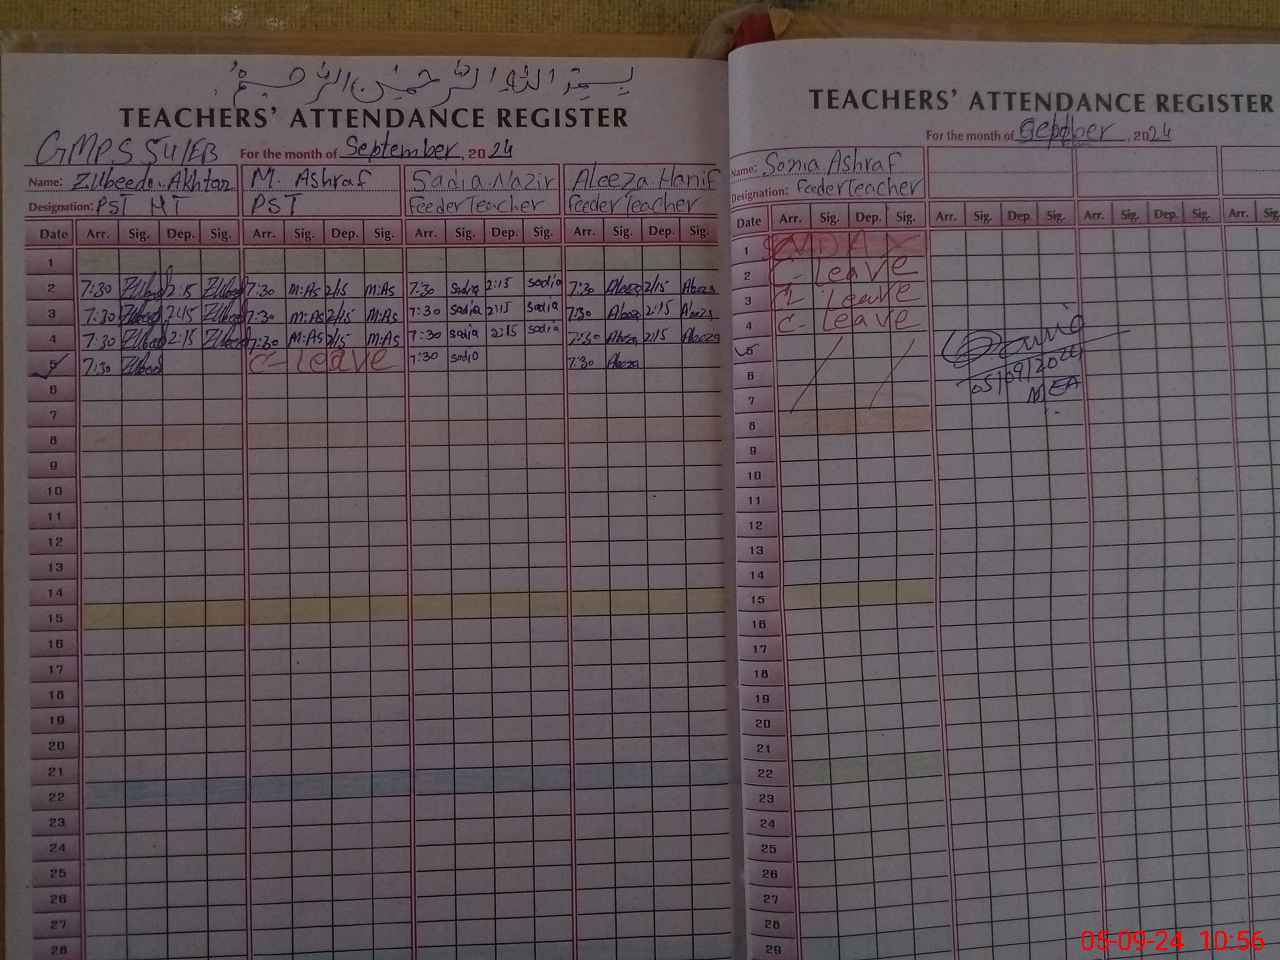 بسم اللہ الرحمٰن الرحیم
TEACHERS' ATTENDANCE REGISTER
GMPS 54/EB For the month of September, 2024
Name: Zubeeda Akhtar M. Ashraf Sadia Nazir Aleeza Hanif
Designation: PST HT PST Feeder Teacher Feeder Teacher
Date Arr. Sig. Dep. Sig. Arr. Sig. Dep. Sig. Arr. Sig. Dep. Sig. Arr. Sig. Dep. Sig.
1
2 7:30 Zubed 2:15 Zubed 7:30 M:As 2/15 M:As 7:30 sadia 2:15 sadia 7:30 Aleeza 2/15 Aleeza
3 7:30 Zubed 2:15 Zubed 7:30 M:As 2/15 M:As 7:30 sadia 2:15 sadia 7:30 Aleeza 2:15 Aleeza
4 7:30 Zubed 2:15 Zubed 7:30 M:As 2/15 M:As 7:30 sadia 2:15 sadia 7:30 Aleeza 2:15 Aleeza
5 7:30 Zubed C- Leave 7:30 sadia 7:30 Aleeza
6
7
8
9
10
11
12
13
14
15
16
17
18
19
20
21
22
23
24
25
26
27
28
TEACHERS' ATTENDANCE REGISTER
For the month of September, 2024
Name: Sonia Ashraf
Designation: Feeder Teacher
Date Arr. Sig. Dep. Sig. Arr. Sig. Dep. Sig. Arr. Sig. Dep. Sig. Arr. Sig.
1 SUNDAY
2 C- Leave
3 C- Leave
4 C- Leave
5
6 05/09/2024
7 MEA
8
9
10
11
12
13
14
15
16
17
18
19
20
21
22
23
24
25
26
27
28
29
05-09-24 10:56